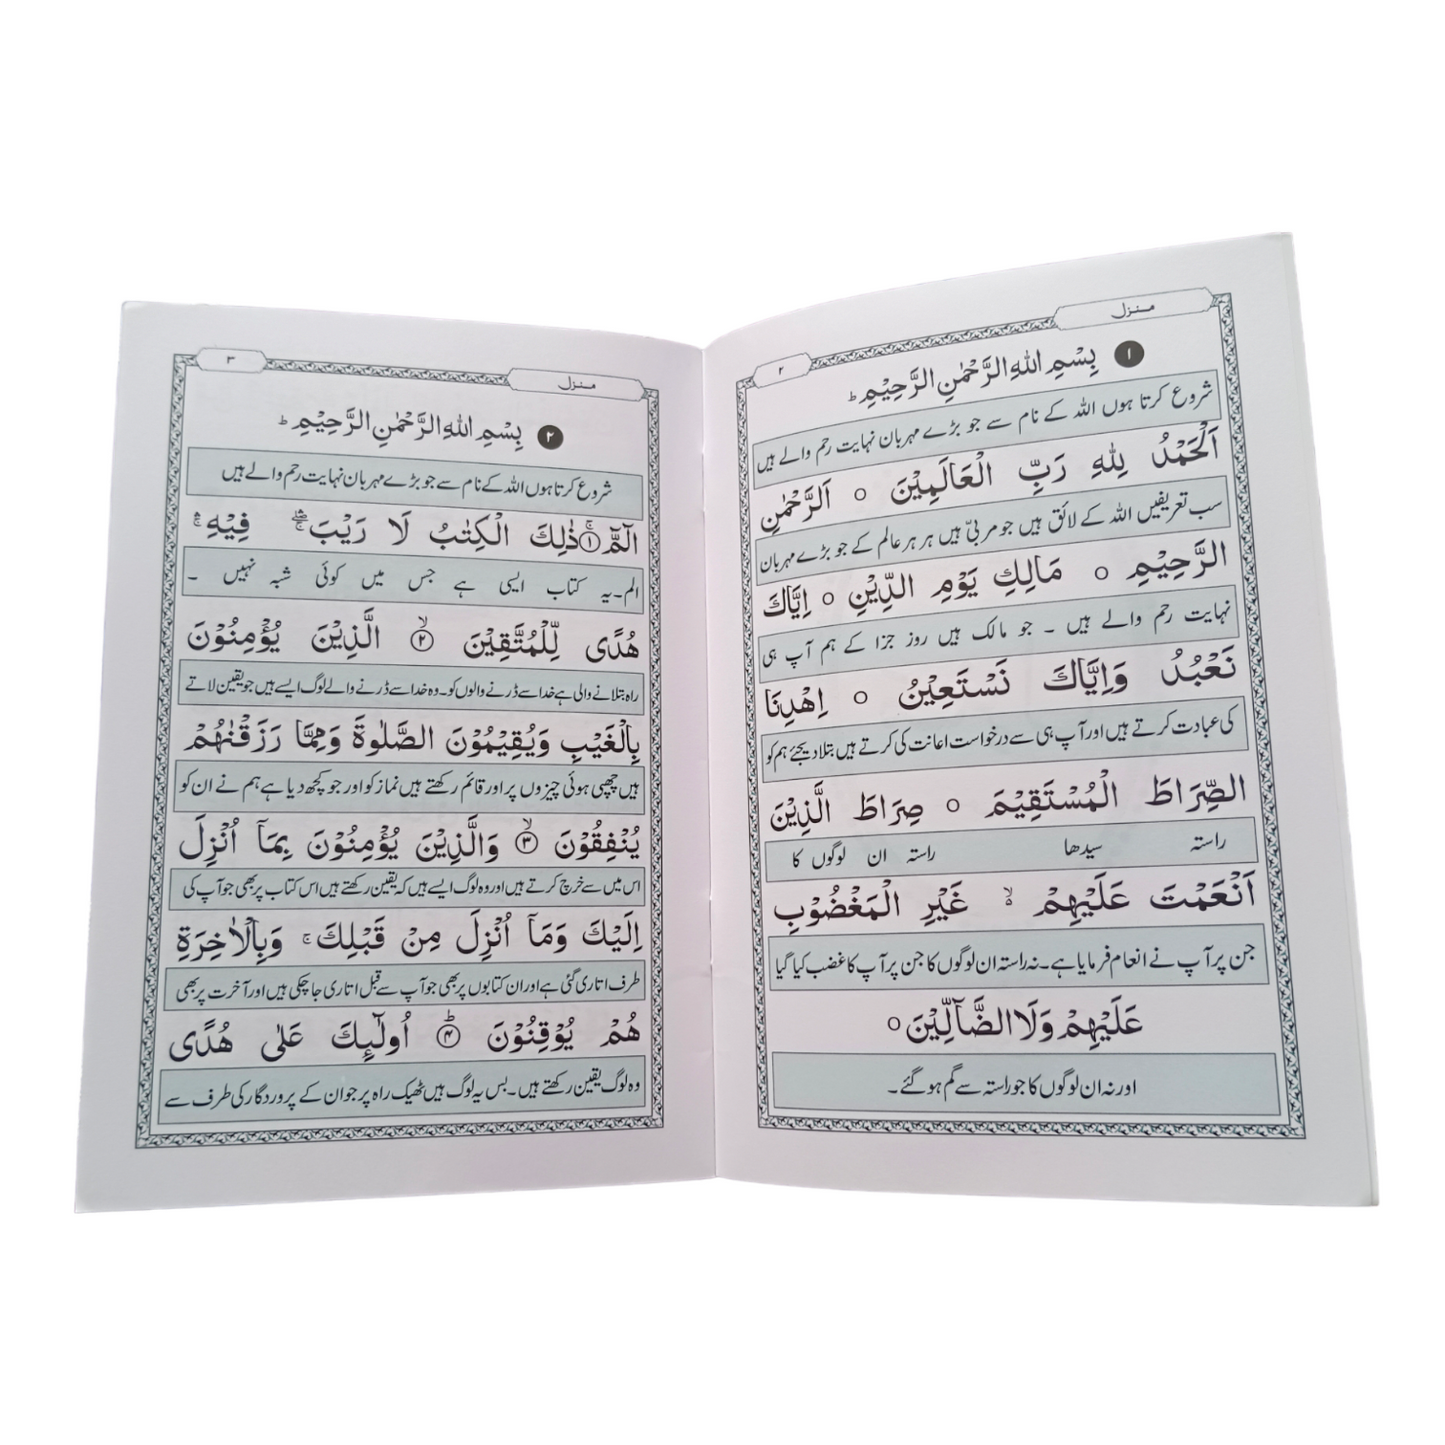 منزل
۲
۱ بِسْمِ اللهِ الرَّحْمٰنِ الرَّحِيْمِ ؕ
شروع کرتا ہوں اللہ کے نام سے جو بڑے مہربان نہایت رحم والے ہیں
اَلْحَمْدُ لِلّٰهِ رَبِّ الْعَالَمِيْنَ ○ اَلرَّحْمٰنِ
سب تعریفیں اللہ کے لائق ہیں جو مربیّ ہیں ہر ہر عالم کے جو بڑے مہربان
الرَّحِيْمِ ○ مَالِكِ يَوْمِ الدِّيْنِ ○ اِيَّاكَ
نہایت رحم والے ہیں ۔ جو مالک ہیں روز جزا کے ہم آپ ہی
نَعْبُدُ وَاِيَّاكَ نَسْتَعِيْنُ ○ اِهْدِنَا
کی عبادت کرتے ہیں اور آپ ہی سے درخواست اعانت کی کرتے ہیں بتلا دیجئے ہم کو
الصِّرَاطَ الْمُسْتَقِيْمَ ○ صِرَاطَ الَّذِيْنَ
راستہ سیدھا راستہ ان لوگوں کا
اَنْعَمْتَ عَلَيْهِمْ ۙ۬ غَيْرِ الْمَغْضُوْبِ
جن پر آپ نے انعام فرمایا ہے۔ نہ راستہ ان لوگوں کا جن پر آپ کا غضب کیا گیا
عَلَيْهِمْ وَلَا الضَّآلِّيْنَ ○
اور نہ ان لوگوں کا جو راستہ سے گم ہو گئے۔
منزل
۳
۲ بِسْمِ اللهِ الرَّحْمٰنِ الرَّحِيْمِ ؕ
شروع کرتا ہوں اللہ کے نام سے جو بڑے مہربان نہایت رحم والے ہیں
الٓمّٓ ۚ﴿۱﴾ ذٰلِكَ الْكِتٰبُ لَا رَيْبَ ۛۖۚ فِيْهِ ۛۚ
الم۔ یہ کتاب ایسی ہے جس میں کوئی شبہ نہیں ۔
هُدًى لِّلْمُتَّقِيْنَ ۙ﴿۲﴾ الَّذِيْنَ يُؤْمِنُوْنَ
راہ بتلانے والی ہے خدا سے ڈرنے والوں کو۔ وہ خدا سے ڈرنے والے لوگ ایسے ہیں جو یقین لاتے
بِالْغَيْبِ وَيُقِيْمُوْنَ الصَّلٰوةَ وَمِمَّا رَزَقْنٰهُمْ
ہیں چھپی ہوئی چیزوں پر اور قائم رکھتے ہیں نماز کو اور جو کچھ دیا ہے ہم نے ان کو
يُنْفِقُوْنَ ۙ﴿۳﴾ وَالَّذِيْنَ يُؤْمِنُوْنَ بِمَآ اُنْزِلَ
اس میں سے خرچ کرتے ہیں اور وہ لوگ ایسے ہیں کہ یقین رکھتے ہیں اس کتاب پر بھی جو آپ کی
اِلَيْكَ وَمَآ اُنْزِلَ مِنْ قَبْلِكَ ۚ وَبِالْاٰخِرَةِ
طرف اتاری گئی ہے اور ان کتابوں پر بھی جو آپ سے قبل اتاری جا چکی ہیں اور آخرت پر بھی
هُمْ يُوْقِنُوْنَ ؕ﴿۴﴾ اُولٰٓئِكَ عَلٰى هُدًى
وہ لوگ یقین رکھتے ہیں۔ بس یہ لوگ ہیں ٹھیک راہ پر جو ان کے پروردگار کی طرف سے